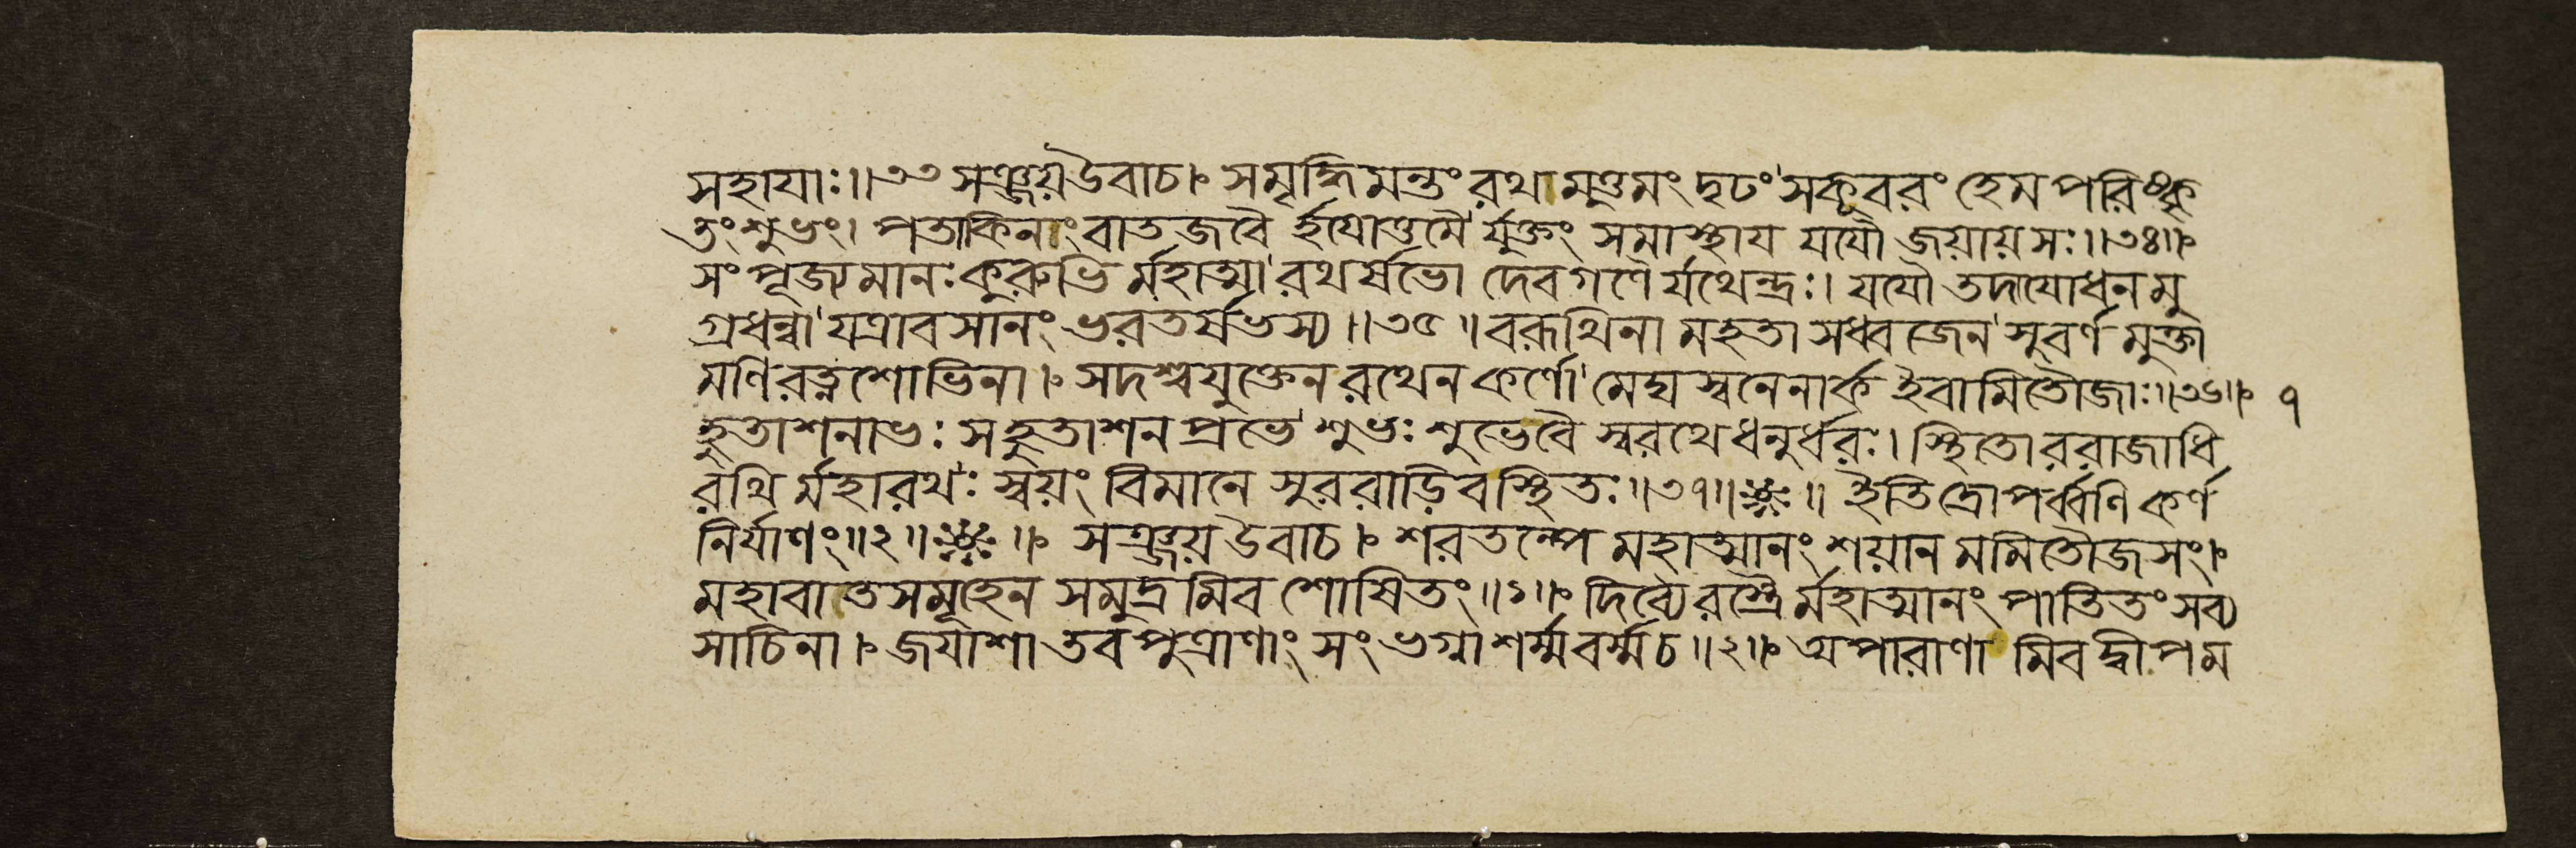 সহাযাঃ॥৩৩ সঞ্জয়উবাচ। সমৃদ্ধিমন্তং রথমুত্তমং দৃঢং সকূবরং হেমপরিষ্কৃ
তংশুভং। পতাকিনাং বাতজবৈ র্হযোত্তমৈ র্যুক্তং সমাস্থায যযৌ জয়ায়সঃ॥৩৪॥
সংপূজ্যমানঃ কুরুভি র্মহাত্মা রথর্ষভো দেবগণৈ র্যথেন্দ্রঃ। যযৌ তদাযোধনমু
গ্রধন্বা যত্রাবসানং ভরতর্ষভস্য॥৩৫॥ বরূথিনা মহতা সধ্বজেন সুবর্ণমুক্তা
মণিরত্নশোভিনা। সদশ্বযুক্তেন রথেন কর্ণো মেঘস্বনেনার্ক ইবামিতৌজাঃ॥৩৬॥ ৭
হুতাশনাভঃ সহুতাশনপ্রভে শুভঃ শুভেবৈ স্বরথে ধনুর্ধরঃ। স্থিতো ররাজাধি
রথি র্মহারথঃ স্বয়ং বিমানে সুররাড়িবস্থিতঃ॥৩৭॥ ॥ ইতি দ্রোপর্ব্বণি কর্ণ
নির্যাণং॥২॥ ॥ সঞ্জয় উবাচ। শরতল্পে মহাত্মানং শয়ান মমিতৌজসং।
মহাবাতসমূহেন সমুদ্রমিব শোষিতং॥১॥ দিব্যৈরস্ত্রৈ র্মহাত্মানং পাতিতং সব্য
সাচিনা। জযাশা তব পুত্রাণাং সংভগ্না শর্ম্মবর্ম্মচ॥২॥ অপারাণা মিবদ্বীপম